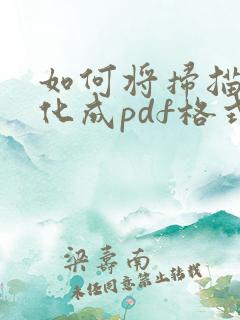 如何将扫描
化成pdf格式
梁寿南
未经同意禁止转载